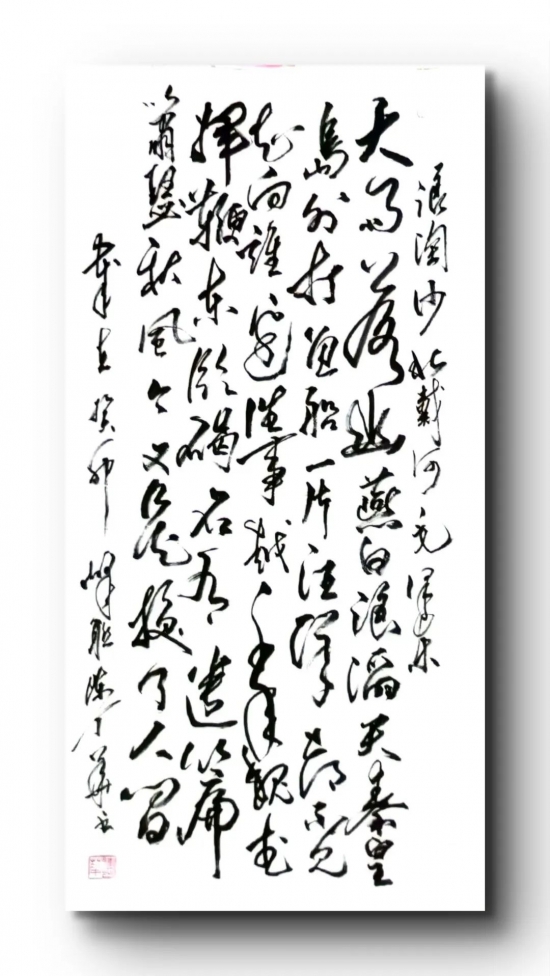 浪淘沙北戴河毛泽东
大雨落幽燕白浪滔天秦皇
島外打鱼船一片汪洋都不见
知向誰邊往事越千年魏武
揮鞭东临碣石有遗篇
萧瑟秋风今又是换了人间
岁在癸卯